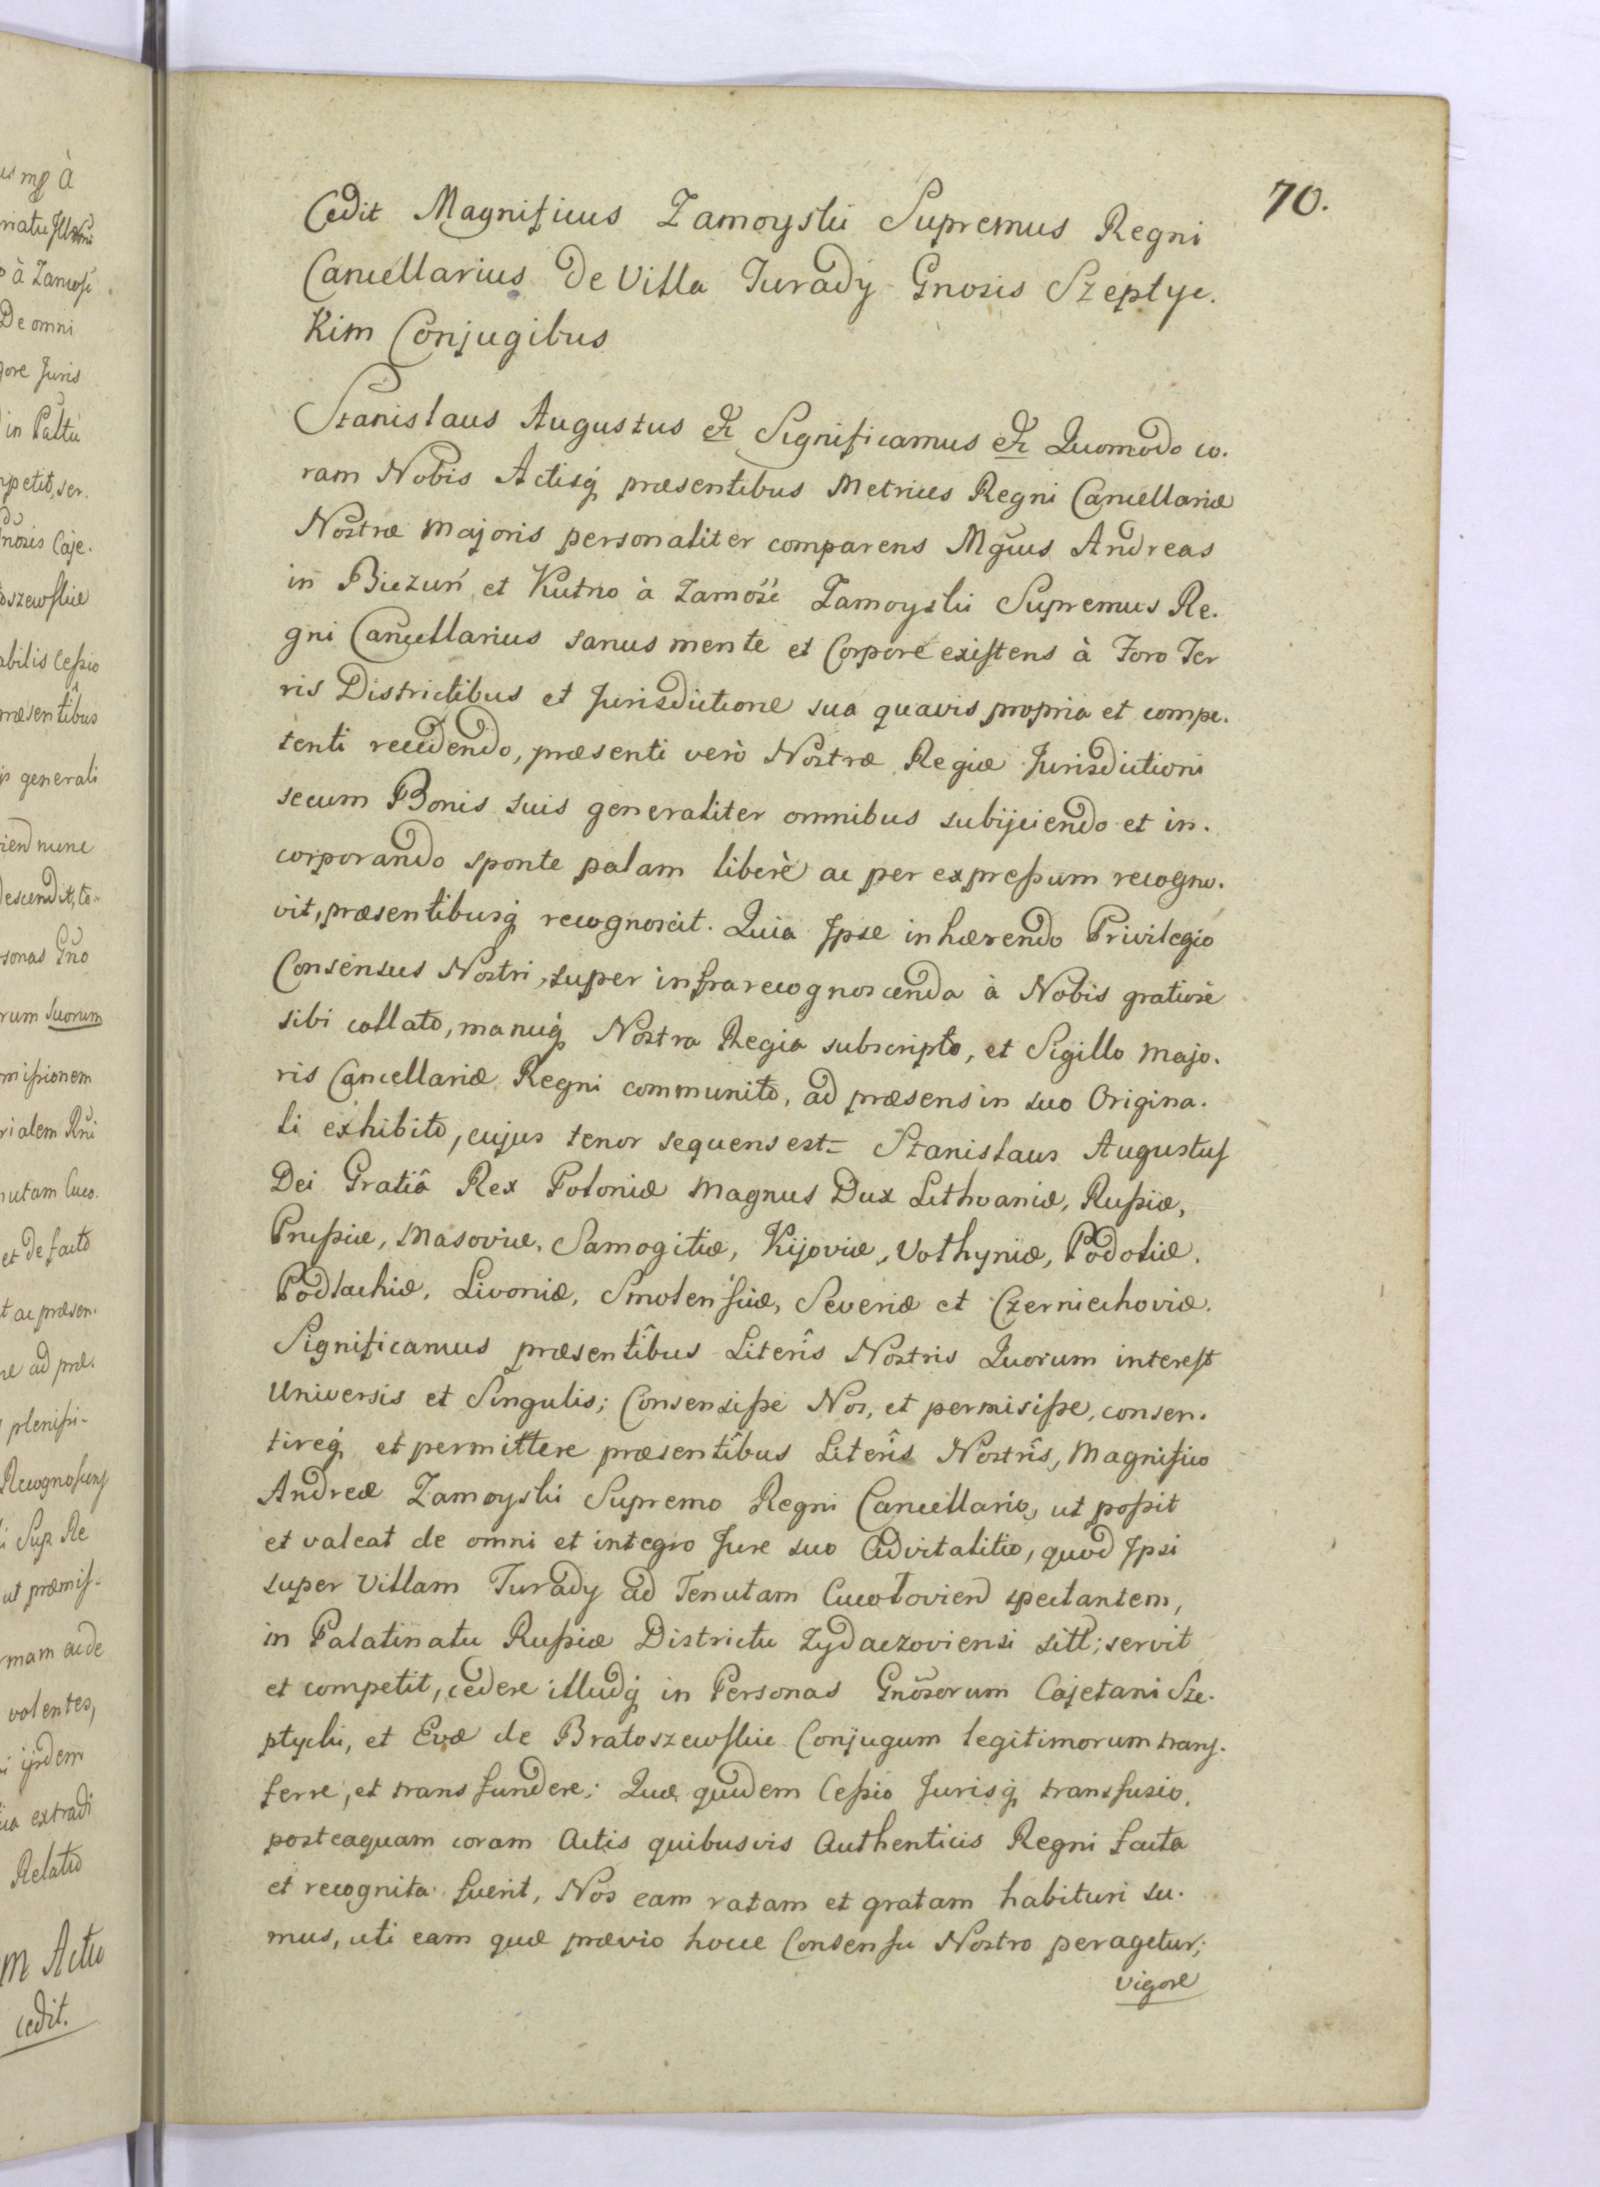 70.
Cedit Magnificus Zamoyski Supremus Regni
Cancellarius De Villa Turady Gnosis Szeptyc.
Kim Conjugibus
Stanislaus Augustus &c Significamus &c Quomodo co.
ram Nobis Actisq́ præsentibus Metrices Regni Cancellariæ
Nostræ Majoris personaliter comparens Mgũus Andreas
in Biezuń et Kutno à Zamość Zamoyski Supremus Re.
gni Cancellarius sanus mente et Corpore existens à Foro Ter
ris Districtibus et Jurisdictione sua quavis propria et compe.
tenti recedendo, præsenti verò Nostræ Regiæ Jurisdictioni
secum Bonis suis generaliter omnibus subijciendo et in.
corporando sponte palam liberè ac per expreßum recogno.
vit, præsentibusq́ recognoscit. Quia Ipse inhærendo Privilegio
Consensus Nostri, super infrarecognoscenda à Nobis gratiosè
sibi collato, manuq́ Nostra Regia subscripto, et Sigillo Majo.
ris Cancellariæ Regni communito, ad præsens in suo Origina.
li exhibito, cujus tenor sequens est= Stanislaus Augustus
Dei Gratiâ Rex Poloniæ Magnus Dux Lithvaniæ, Rußiæ,
Prußiæ, Masoviæ, Samogitiæ, Kijoviæ, Volhyniæ, Podoliæ.
Podlachiæ, Livoniæ, Smolensciæ, Severiæ et Czerniechoviæ.
Significamus præsentîbus Literîs Nostris Quorum interest
Universis et Singulis; Consensiße Nos, et permisiße, consen.
tireq́ et permittere præsentîbus Literîs Nostrîs, Magnifico
Andreæ Zamoyski Supremo Regni Cancellario, ut poßit
et valeat de omni et integro Jure suo Advitalitio, quod Ipsi
super Villam Turady ad Tenutam Cucołovien spectantem,
in Palatinatu Rußiæ Districtu Zydaczoviensi sitt; servit
et competit, cedere illudq́ in Personas Gnõsorum Cajetani Sze.
ptycki, et Evæ de Bratoszewskie Conjugum legitimorum trans.
ferre, et transfundere; Quæ quidem Ceßio Jurisq́ transfusio,
posteaquam coram Actis quibusvis Authenticis Regni facta
et recognita fuerit, Nos eam ratam et gratam habituri su.
mus, uti eam quæ prævio hocce Consensu Nostro peragetur;
vigore